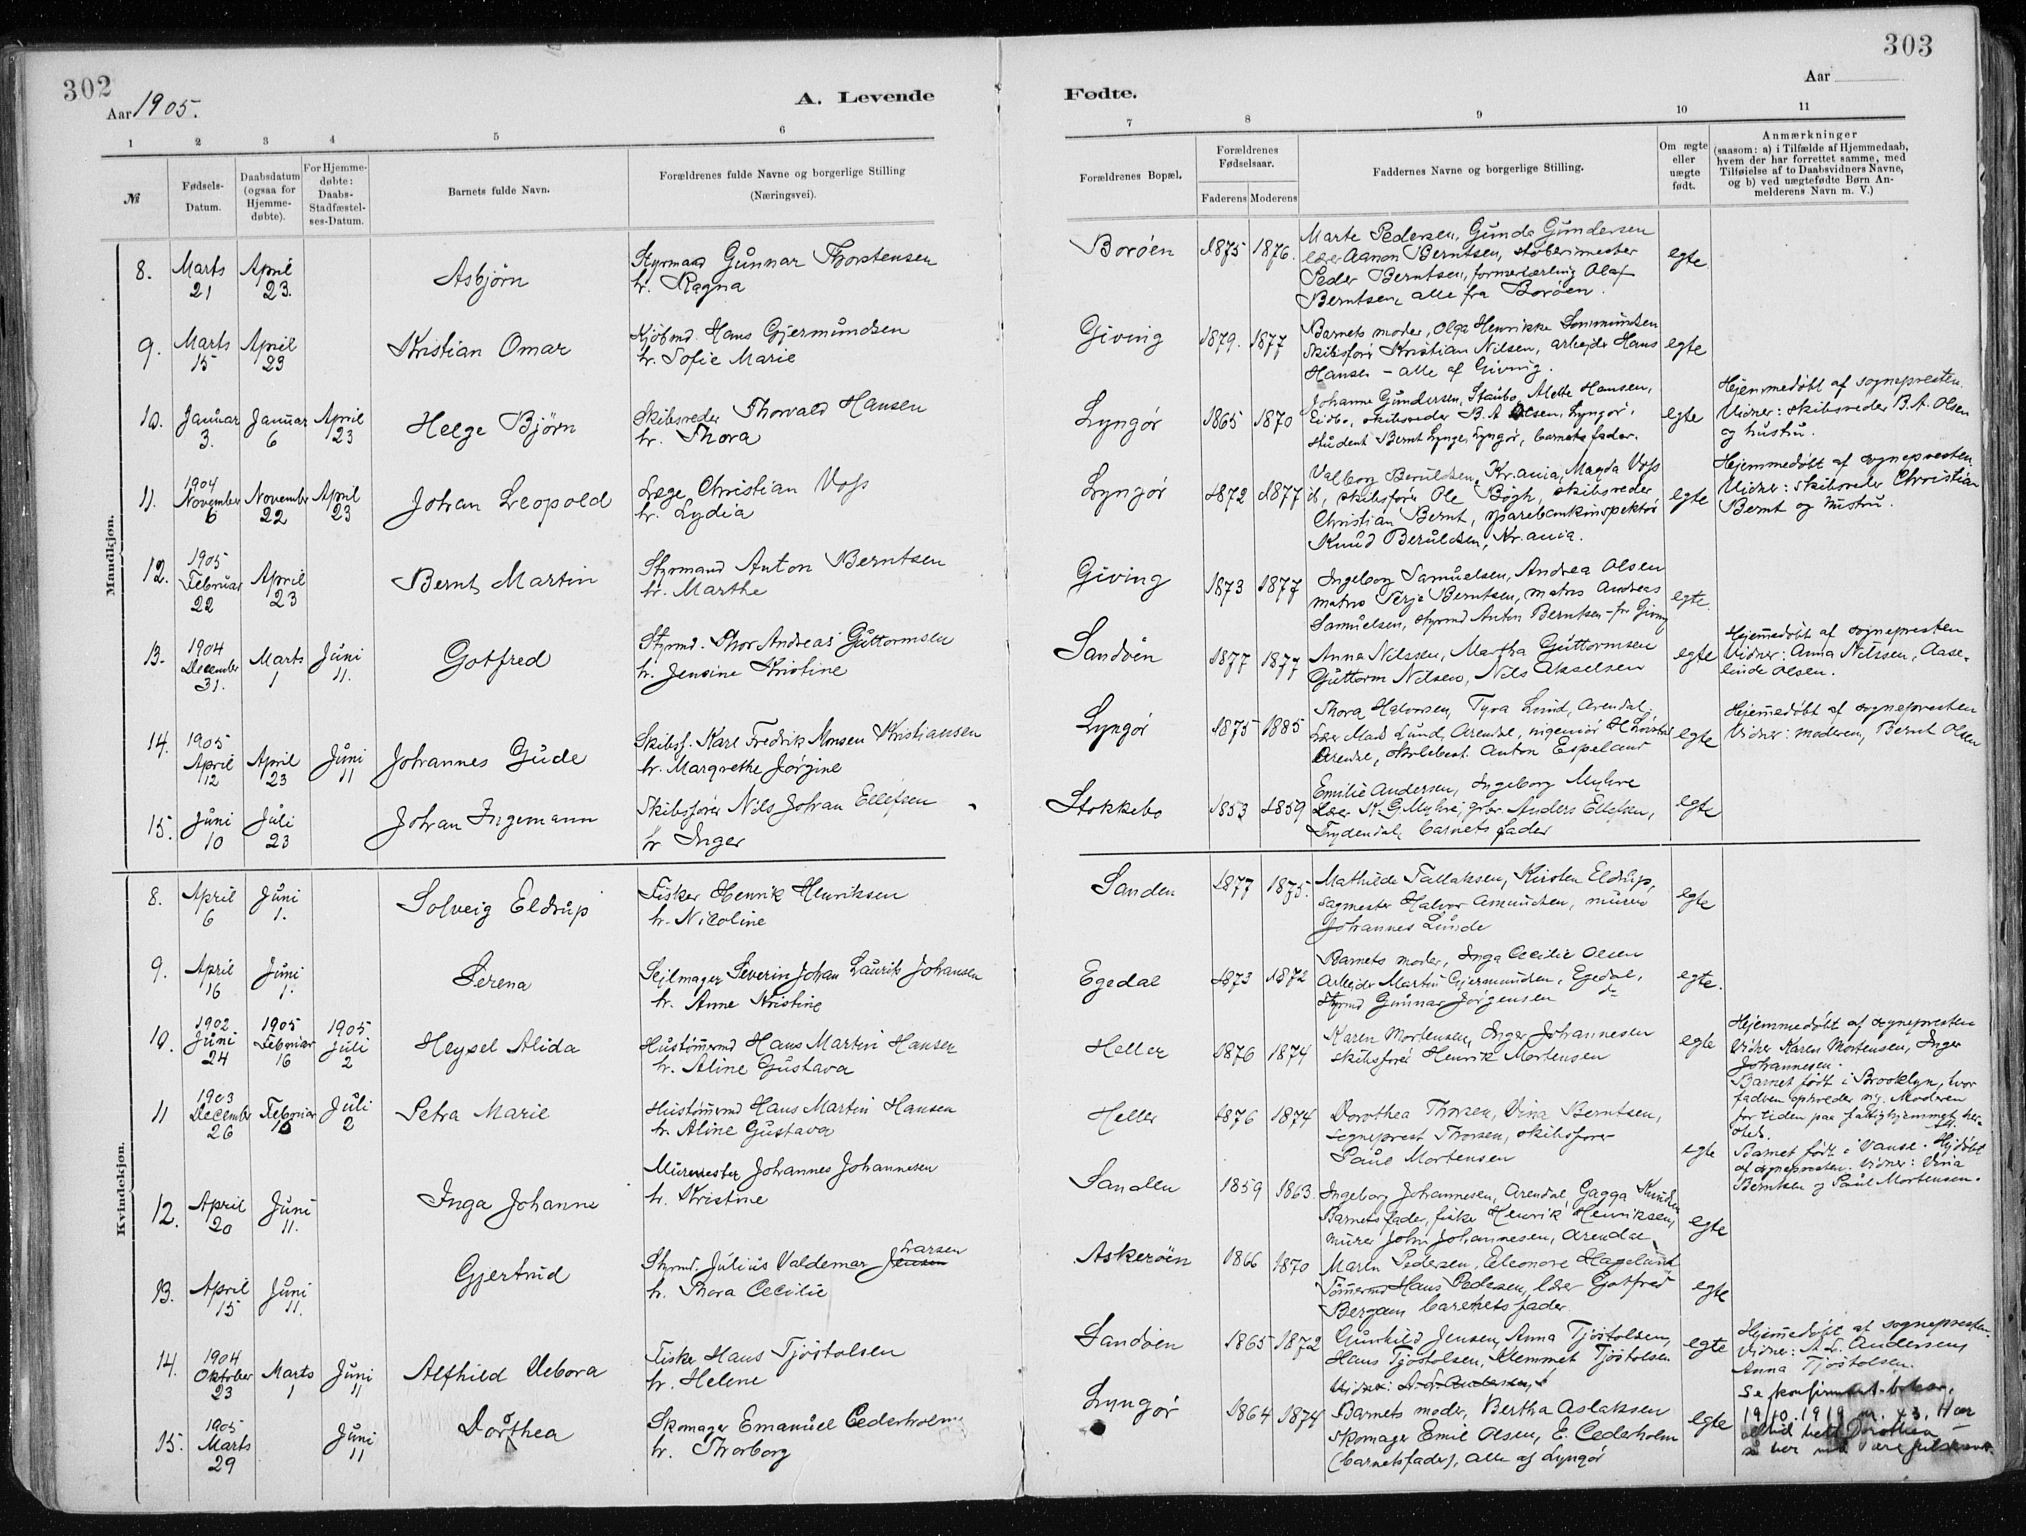 302
Aar 1905.
A. Levende
1 2 3 4 5 6
№
Fødsels-Datum.
Daabsdatum (ogsaa for Hjemme-døbte).
For Hjemme-døbte: Daabs-Stadfæstel-ses-Datum.
Barnets fulde Navn.
Forældrenes fulde Navne og borgerlige Stilling
(Næringsvei).
Mandkjøn.
8. Marts 21 April 23. Asbjörn Styrmand Gunnar Thorstensen
h. Ragna
9. Marts 15 April 23 Kristian Omar Kjöbmd. Hans Gjermundsen
h. Sofie Marie
10. Januar 3. Januar 6 April 23 Helge Björn Skibsreder Thorvald Hansen
h. Thora
11. 1904 November 6 November 22 April 23 Johan Leopold Læge Christian Voss
h. Lydia
12. 1905 Februar 22 April 23 Bernt Martin Styrmand Anton Berntsen
h. Marthe
13. 1904 December 31. Marts 1 Juni 11. Gotfred Styrmd. Thor Andreas Guttormsen
h. Jensine Kristine
14. 1905 April 12 April 23 Juni 11 Johannes Gude Skibsf. Karl Fredrik Monsen Kristiansen
h. Margrethe Jörgine
15. Juni 10 Juli 23 Johan Ingemann Skibsfören Nils Johan Ellefsen
h. Inger
Kvindekjøn.
8. April 6 Juni 1. Solveig Eldrup Fisker Henrik Henriksen
h. Nicoline
9. April 16 Juni 1. Serena Seilmager Severin Johan Laurits Johansen
h. Anne Kristine
10. 1902 Juni 24 1905 Februar 16 1905 Juli 2 Heysel Alida Hustömrmd Hans Martin Hansen
h. Aline Gustava
11 1903 December 26 Februar 16 Juli 2 Petra Marie Hustömrmd Hans Martin Hansen
h. Aline Gustava
12. April 20 Juni 11. Inga Johanne Murmester Johannes Johannesen
h. Kristine
13. April 15 Juni 11. Gjertrud Styrmd. Julius Valdemar Jensen Larsen
h. Thora Cecilie
14. 1904 Oktober 23 Marts 1 Juni 11 Alfhild Debora Fisker Hans Tjöstolsen
h. Helene
15. 1905 Marts 29 Juni 11 Dorthea Skomager Emanuel Cederholm
h. Thorborg
303
Aar
Fødte.
7 8 9 10 11
Forældrenes Bopæl.
Forældrenes Fødselsaar.
Faderens Moderens
Faddernes Navne og borgerlige Stilling.
Om ægte eller uægte født.
Anmærkninger
(saasom: a) i Tilfælde af Hjemmedaab,
hvem der har forrettet samme, med
Tilføielse af to Daabsvidners Navne,
og b) ved uægtefødte Børn An-
melderens Navn m. V.)
Boröen 1875 1876. Marte Pedersen, Gunda Gundersen
lærer Aanon Berntsen, støberimester
Peder Berntsen, formerlærling Olaf
Berntsen, alle fra Boröen.
egte
Giving 1879. 1877 Barnets moder, Olga Henrikke
Skibsförer Kristian Nilsen, arbejder Hans
Hansen – alle af Giving.
egte
Lyngör 1865 1870 Johanne Gundersen, Staubo, Alette Hansen,
Eidbo, skibsreder B. A Olsen, Lyngör,
student Bernt Lynge, Lyngör, barnets fader.
egte
Hjemmedöbt af sognepresten.
Vidner: skibsreder B. A. Olsen
og hustru.
Lyngör 1872 1877 Valborg Beruldsen, Kr.ania, Magda Voss
ib, skibsförer Ole Bögh, skibsreder
Christian Bernt, sparebankinspektör
Knud Beruldsen, Kr.ania.
egte
Hjemmedöbt af sognepresten.
Vidner: skibsreder Christian
Bernt og hustru.
Giving 1873 1877 Ingeborg Samuelsen, Andrea Olsen
matros Terje Berntsen, matros Andreas
Samuelsen, styrmd Anton Berntsen – fr Giving
egte.
Sandöen 1877 1877 Anna Nilssen, Martha Guttormsen
Guttorm Nilsen, Nils Akselsen
egte
Hjemmedöbt af sognepresten
Vidner: Anna Nilssen, Aase-
linde Olsen.
Lyngör 1875 1885 Thora Halvorsen, Tyra Lund, Arendal.
Lærer Mads Lund, Arendal, ingeniör H
Arendal, Anton Espeland
egte
Hjemmedöbt af sognepresten
Vidner: moderen, Bernt Olsen
Stokkebo 1853 1859 Emilie Andersen, Ingeborg Myhre
Lærer K. G. Myhre, grbr. Anders Ellefsen,
Frydendal, barnets fader
egte
Sanden 1877 1875. Mathilde Tallaksen, Kirsten Eldrup,
sagmester Halvor Amundsen, murer
Johannes Lunde
egte
Egedal 1873 1872 Barnets moder, Inga Cecilie Olsen
Arbejder Martin Gjermundsen, Egedal,
Styrmd Gunnar Jörgensen do
egte.
Heller 1876 1874 Karen Mortensen, Inger Johannesen
skibsförer Henrik Mortensen
egte
Hjemmedöbt af sognepresten
Vidner Karen Mortensen, Inger
Johannesen.
Barnet födt i Brooklyn, hvor
faderen opholder sig. Moderen
for tiden paa fattighjemmet her-
steds.
Heller 1876 1874 Dorothea Thorsen, Vina Berntsen,
Sogneprest Thorsen, skibsförer
Paul Mortensen
egte
Barnet födt i Vanse. Hjdöbt
af sognepresten. Vidner: Vina
Berntsen og Paul Mortensen.
Sanden 1859 1863. Ingeborg Johannesen, Arendal, Gagga Knudsen
Barnets fader, fisker Henrik Henriksen,
murer John Johannesen, Arendal
egte
Askeröen 1866 1870 Maren Pedersen, Eleonore Hagelund
Tömermd Hans Pedersen, lærer Gotfred
Bergam barnets fader.
egte
Sandöen 1865 1872 Gunhild Jensen, Anna Tjöstolsen,
Hans Tjöstolsen, Klemmet Tjöstolsen
Vidner: A. L. Andersen,
egte
Hjemmedöbt af sognepresten.
Vidner: A. L. Andersen,
Anna Tjöstolsen.
Lyngör 1864 1874 Barnets moder, Bertha Aslaksen
Skomager Emil Olsen, E. Cederholm
(barnets fader), alle af Lyngör
egte
Se
19/10. 1919 nr. 43. Har
altid hett Dorothea